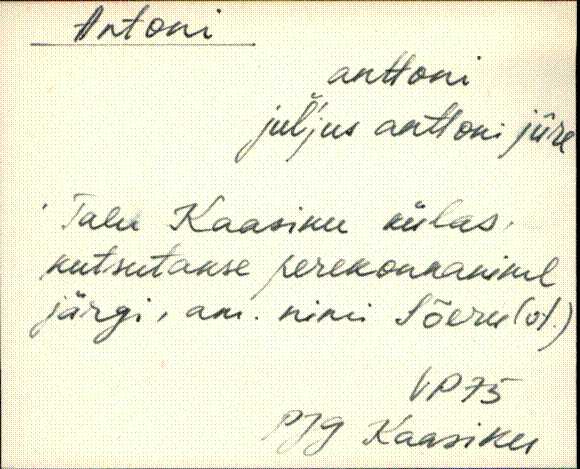 Antoni
anttoni
jul̆'jus anttoni jüre
Talu Kaasiku külas,
kutsutakse perekonnanime
järgi, am. nimi Sõeru (vt.)
VP75
PJg Kaasiku